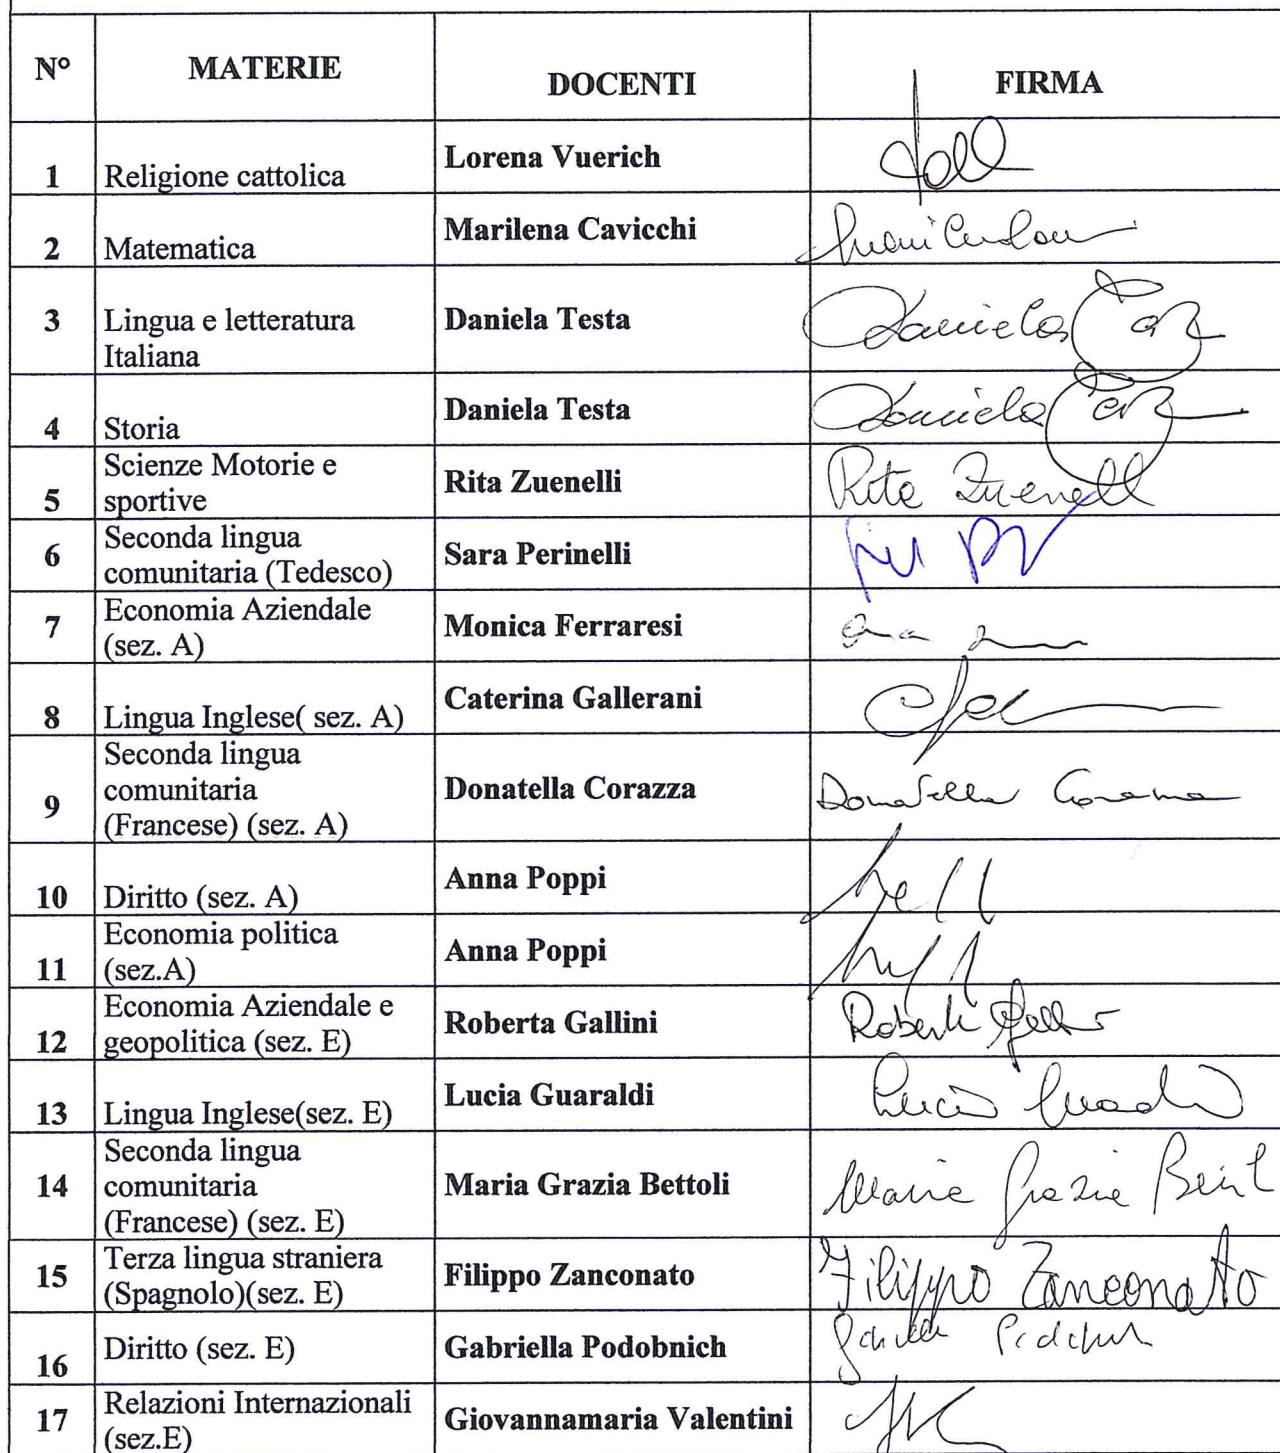 N° MATERIE DOCENTI FIRMA
1 Religione cattolica Lorena Vuerich
2 Matematica Marilena Cavicchi
3 Lingua e letteratura Italiana Daniela Testa Daniela
4 Storia Daniela Testa Daniela
5 Scienze Motorie e sportive Rita Zuenelli Rita Zuenelli
6 Seconda lingua comunitaria (Tedesco) Sara Perinelli
7 Economia Aziendale (sez. A) Monica Ferraresi
8 Lingua Inglese( sez. A) Caterina Gallerani
9 Seconda lingua comunitaria (Francese) (sez. A) Donatella Corazza Donatella Corazza
10 Diritto (sez. A) Anna Poppi
11 Economia politica (sez.A) Anna Poppi
12 Economia Aziendale e geopolitica (sez. E) Roberta Gallini Roberta
13 Lingua Inglese(sez. E) Lucia Guaraldi Lucia
14 Seconda lingua comunitaria (Francese) (sez. E) Maria Grazia Bettoli Maria Grazia
15 Terza lingua straniera (Spagnolo)(sez. E) Filippo Zanconato Filippo Zanconato
16 Diritto (sez. E) Gabriella Podobnich
17 Relazioni Internazionali (sez.E) Giovannamaria Valentini